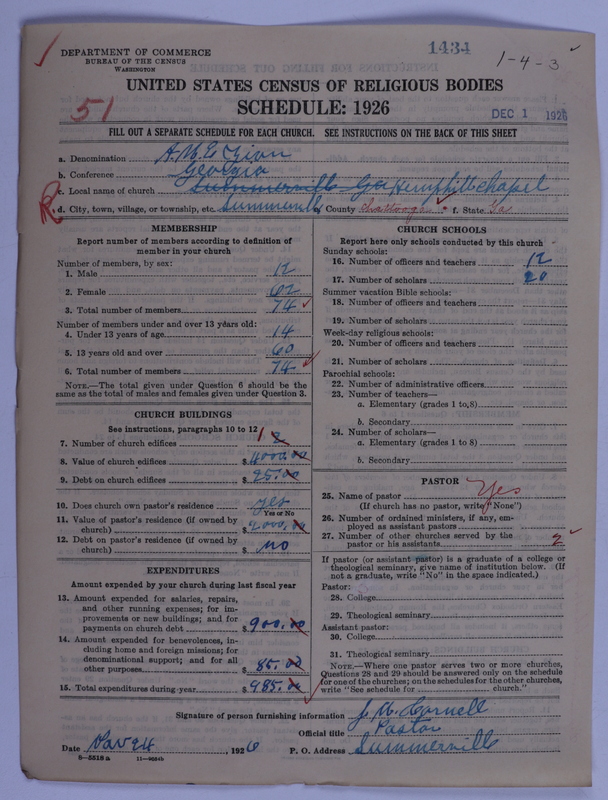 DEPARTMENT OF COMMERCE
BUREAU OF THE CENSUS
WASHINGTON
1434
1-4-3
51
UNITED STATES CENSUS OF RELIGIOUS BODIES
SCHEDULE: 1926
DEC 1 1926
FILL OUT A SEPARATE SCHEDULE FOR EACH CHURCH. SEE INSTRUCTIONS ON THE BACK OF THIS SHEET
a. Denomination A.M.E Zion
b. Conference Georgia
c. Local name of church Summerville Ga Hemphill Chapel
R. d. City, town, village, or township, etc. Summerville County Chattooga f. State Ga
MEMBERSHIP
Report number of members according to definition of
member in your church
Number of members, by sex:
1. Male 12
2. Female 62
3. Total number of members 74
Number of members under and over 13 years old:
4. Under 13 years of age 14
5. 13 years old and over 60
6. Total number of members 74
NOTE.—The total given under Question 6 should be
same as the total of males and females given under Question 3.
CHURCH BUILDINGS
See instructions, paragraphs 10 to 12
7. Number of church edifices 1 2
8. Value of church edifices $4000.00
9. Debt on church edifices $25.00
10. Does church own pastor's residence yes
Yes or No
11. Value of pastor's residence (if owned by
church) $2000.00
12. Debt on pastor's residence (if owned by
church) $ no
EXPENDITURES
Amount expended by your church during last fiscal year
13. Amount expended for salaries, repairs,
and other running expenses; for im-
provements or new buildings; and for
payments on church debt $900.00
14. Amount expended for benevolences, in-
cluding home and foreign missions; for
denominational support; and for all
other purposes $85.00
15. Total expenditures during year $985.00
CHURCH SCHOOLS
Report here only schools conducted by this church
Sunday schools:
16. Number of officers and teachers 12
17. Number of scholars 20
Summer vacation Bible schools:
18. Number of officers and teachers
19. Number of scholars
Week-day religious schools:
20. Number of officers and teachers
21. Number of scholars
Parochial schools:
22. Number of administrative officers
23. Number of teachers—
a. Elementary (grades 1 to 8)
b. Secondary
24. Number of scholars—
a. Elementary (grades 1 to 8)
b. Secondary
PASTOR
25. Name of pastor Yes
(If church has no pastor, write "None")
26. Number of ordained ministers, if any, em-
ployed as assistant pastors
27. Number of other churches served by the
pastor or his assistants 2
If pastor (or assistant pastor) is a graduate of a college or
theological seminary, give name of institution below. (If
not a graduate, write "No" in the space indicated.)
Pastor:
28. College
29. Theological seminary
Assistant pastor:
30. College
31. Theological seminary
NOTE.—Where one pastor serves two or more churches,
Questions 28 and 29 should be answered only on the schedule
for one of the churches; on the schedules for the other churches,
write "See schedule for church."
Signature of person furnishing information Cornell
Official title Pastor
Date , 1926 P. O. Address Summerville
8-5518 a